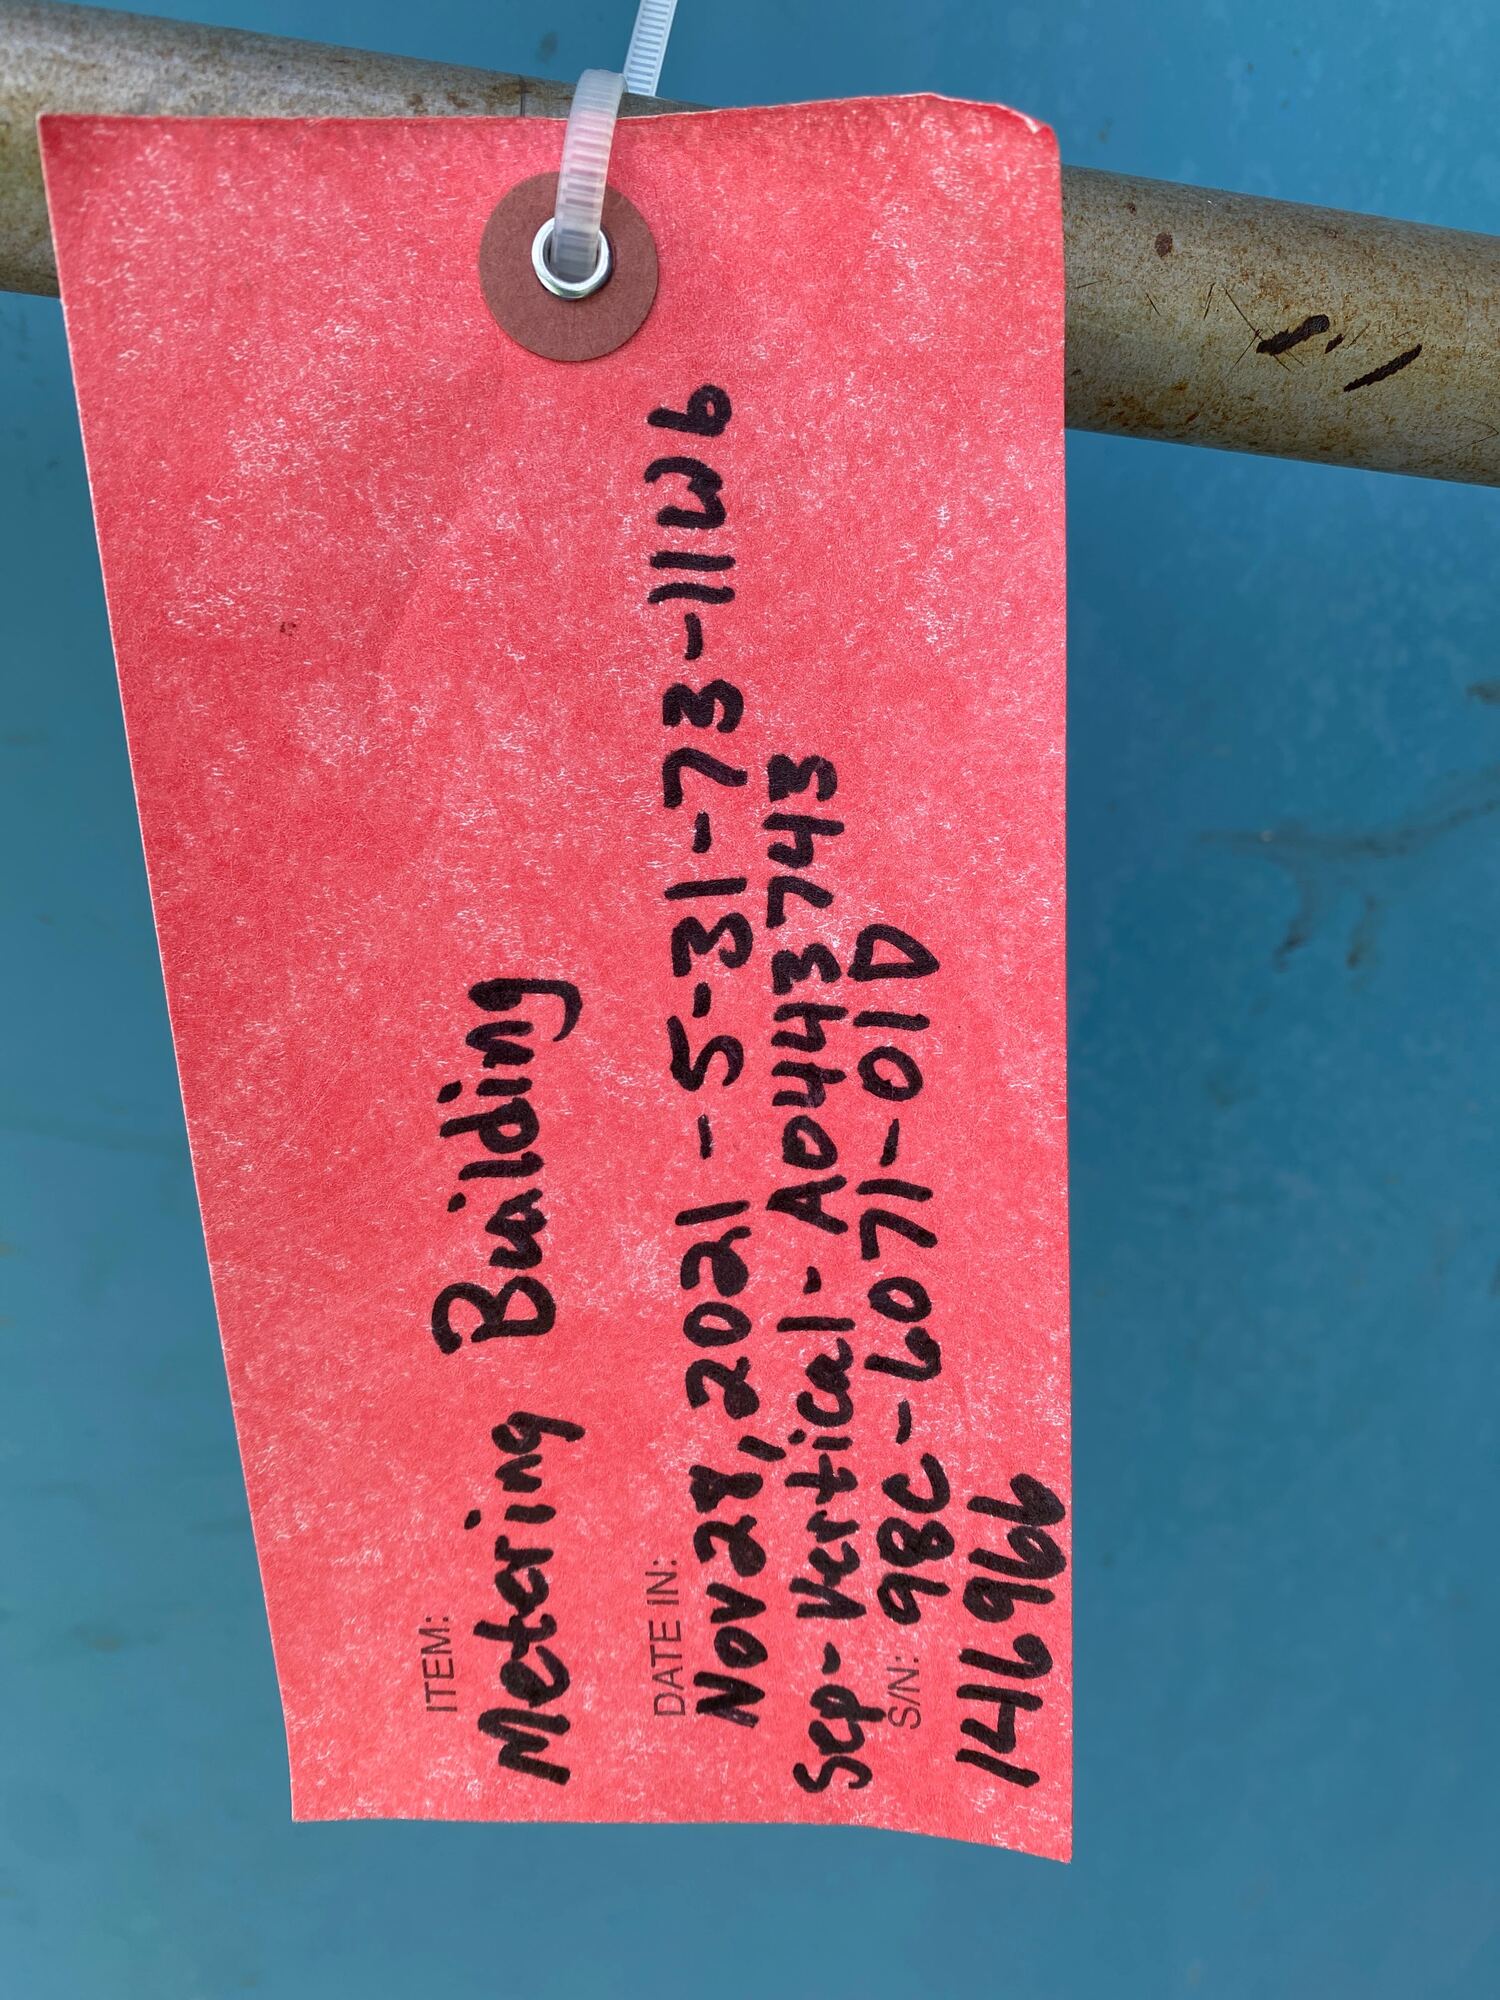 ITEM:
Metering Building
DATE IN:
Nov 28, 2021 - 5-31-73-11W6
Sep- Vertical- A0443743
S/N: 98C-6071-01D
146966